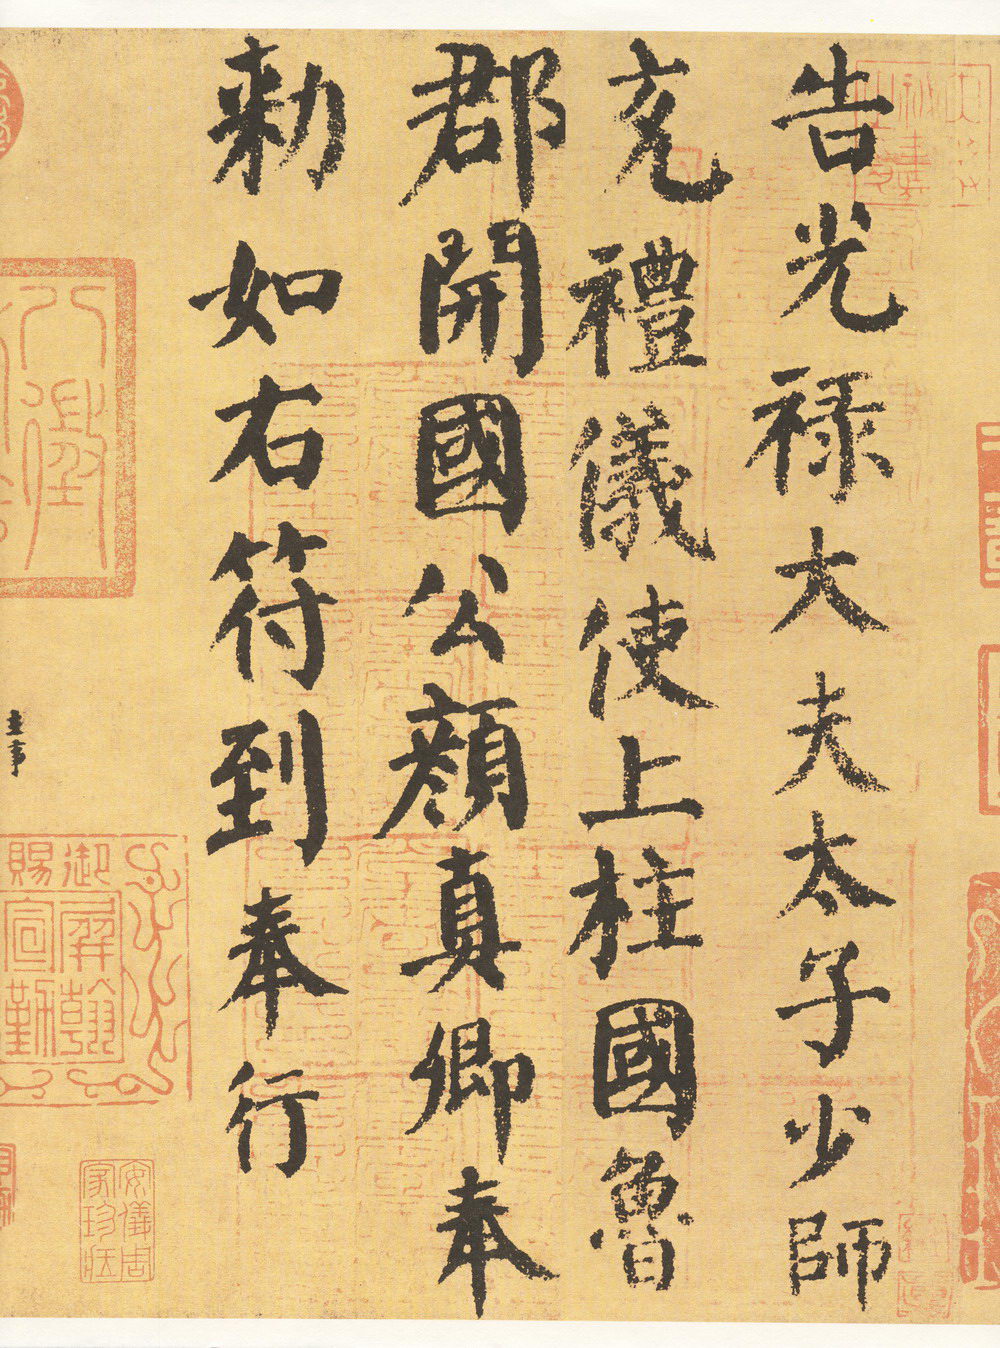 告光祿大夫太子少師
充禮儀使上柱國魯
郡開國公顏真卿奉
勑如右符到奉行
主事
御屏翰
賜宣勤
安儀周
家珍藏